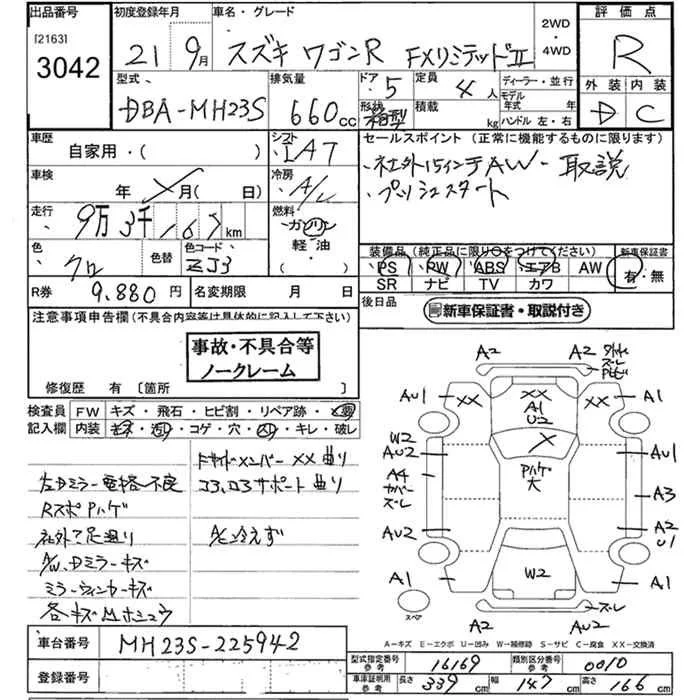 出品番号
[2163]
3042
初度登録年月
21 9月
車名・グレード
スズキ ワゴンR FXリミテッドII
2WD
・
4WD
評価点
R
外装 内装
D C
型式
DBA-MH23S
排気量
660cc
ドア 5
形状 箱型
定員 4人
積載 kg
ディーラー・並行
モデル年式 年
ハンドル 左・右
車歴
自家用・( )
シフト
IAT
車検
年 月(日)
冷房
A/C
走行
9万3千167km
燃料
ガソリン
軽・油
・( )
色
クロ
色替
色コード
ZJ3
R券 9,880円
名変期限 月 日
セールスポイント(正常に機能するものに限ります)
・社外15インチAW・取説
・プッシュスタート
装備品(純正品に限り○をつけてください)
新車保証書
PS PW ABS エアB AW
SR ナビ TV カワ
有・無
後日品
新車保証書・取説付き
注意事項申告欄(不具合内容等は具体的に記入して下さい)
事故・不具合等
ノークレーム
修復歴 有 [箇所
検査員
記入欄
FW キズ・飛石・ヒビ割・リペア跡・要
内装 キズ・汚れ・コゲ・穴・スレ・キレ・破レ
左Dミラー電格不良
Rスポ Pハゲ
社外マ足廻り
A/W、Dミラーキズ
ミラーウィンカーキズ
各キズ凹ホシュウ
FサイドメンバーXX曲り
コアサポート曲り
A/C冷えず
A2 A2
Pトビ
AU1 XX XX XX A1
A1
U2
W2
AU2
X
AU1
A4
カバー
ズレ
Pハゲ
大
A3
AU2
A2
U1
A1 W2 A1
スペア
A2 AU2
ズレ
A-キズ E-エクボ U-凹み W-補修跡 S-サビ C-腐食 XX-交換済
車台番号
MH23S-225942
登録番号
型式指定番号
参考
16169
類別区分番号
参考
0010
車庫証明用
参考
長さ 339cm 幅 147cm 高さ 166cm